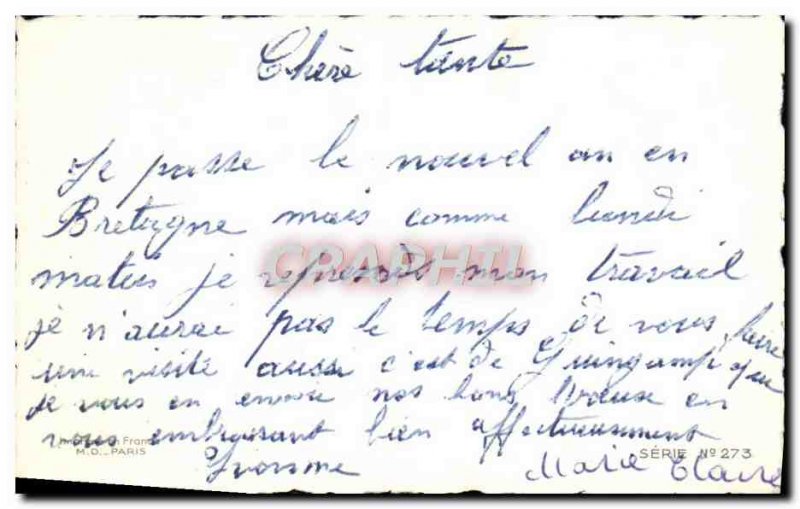 Chère tante
Je passe le nouvel an en
Bretagne mais comme lundi
matin je reprends mon travail
CRAPHIL
je n'aurai pas le temps de vous faire
une visite aussi c'est de Guingamp que
je vous en envoie nos bons voeux en
vous embrassant bien affectueusement
M.D. PARIS
SÉRIE No 273
Yvonne
Marie Claire